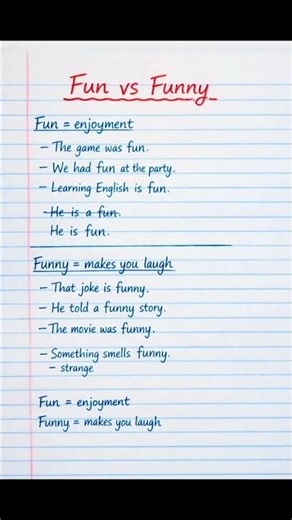 Fun vs Funny
Fun = enjoyment
– The game was fun.
– We had fun at the party.
– Learning English is fun.
– He is a fun.
He is fun.
Funny = makes you laugh
– That joke is funny.
– He told a funny story.
– The movie was funny.
– Something smells funny.
– strange
Fun = enjoyment
Funny = makes you laugh